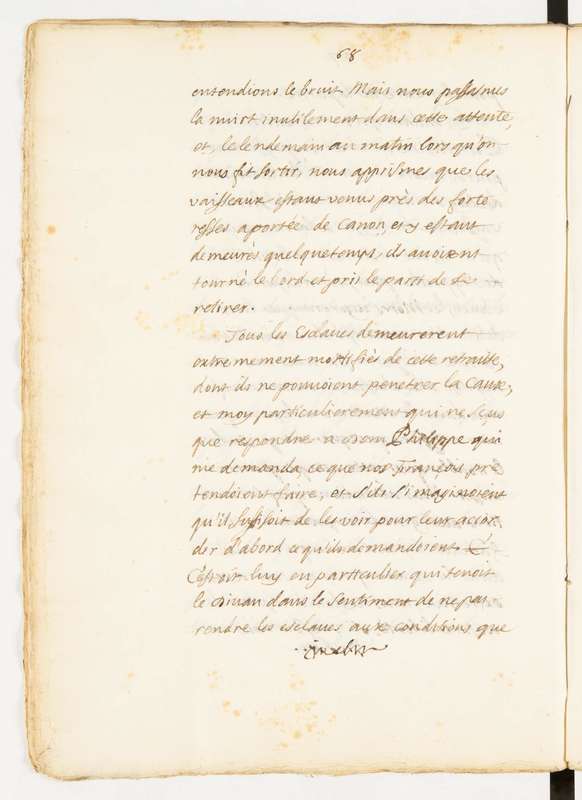 68
entendions le bruit. Mais nous passames
la nuict inutilement dans cette attente,
et, le lendemain au matin lors qu'on
nous fit sortir, nous apprismes que les
vaisseaux estans venus près des forte
resses a portée de Canon, et y estant
demeurés quelque temps, ils avoient
tourné le bord et pris le parti de se
retirer.
Tous les Esclaves demeurerent
extremement mortifiés de cette retraite,
dont ils ne pouvoient penetrer la Cause,
et moy particulierement qui ne sçus
que respondre a Dom Philippe qui
me demanda ce que nos François pre
tendoient faire, et s'ils s'imaginoient
qu'il suffisoit de les voir pour leur accor
der d'abord ce qu'ils demandoient.
C'estoit luy en particulier qui tenoit
le Divan dans le sentiment de ne pas
rendre les esclaves aux conditions que